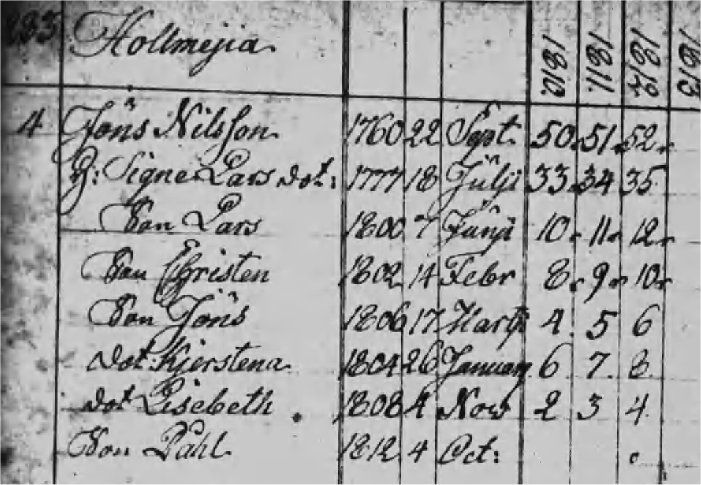 233 Hollmejia 1810. 1811. 1812 1813
4 Jöns Nilsson. 1760 22 Sept. 50. 51. 52.
H: Signe Lars dot: 1777 18 Jülji 33. 34 35
Son Lars 1800 7 Jünji 10. 11. 12.
Son Christen 1802 14 Febr 8. 9. 10.
Son Jöns 1806 17 Martji 4. 5 6
dot. Kjerstena 1804 26 January 6 7. 8.
dot Lisebeth. 1808 4 Nov 2 3 4.
Son Påhl. 1812 4 Oct: 0